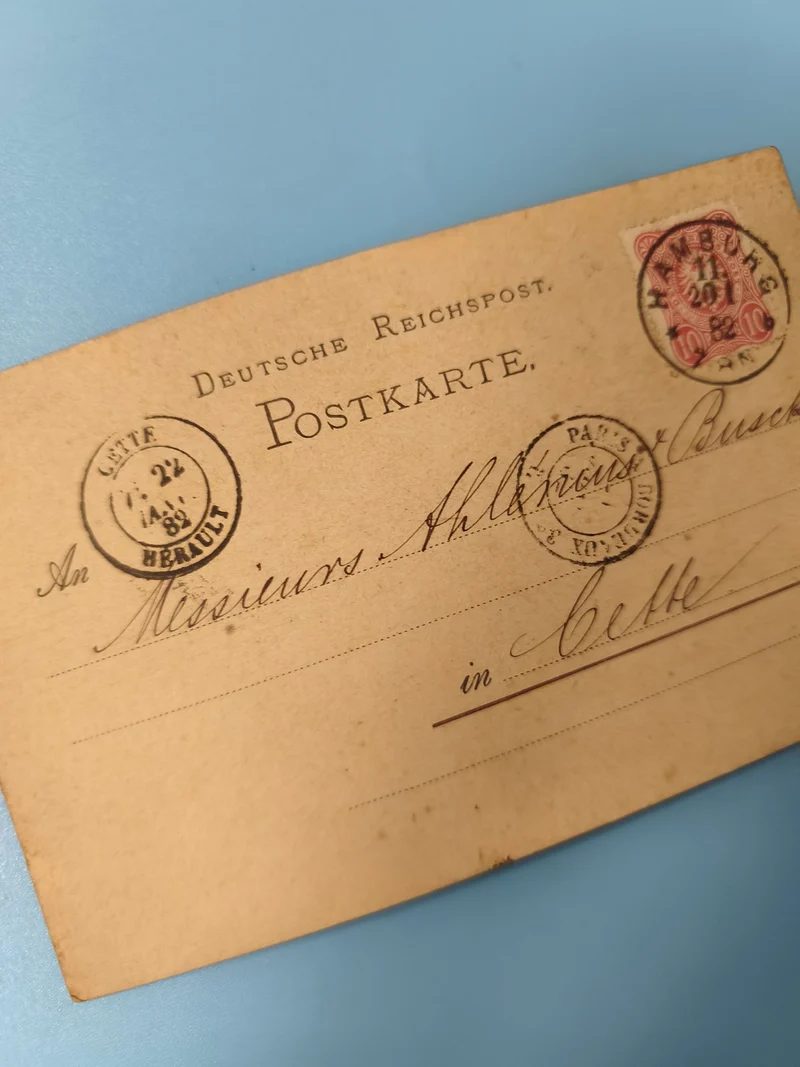 DEUTSCHE REICHSPOST.
POSTKARTE.
HAMBURG
11.
20 1
82
10 10
CETTE
22
JAN.
82
HÉRAULT
PARIS
BORDEAUX
An Messieurs & Busch
in Cette